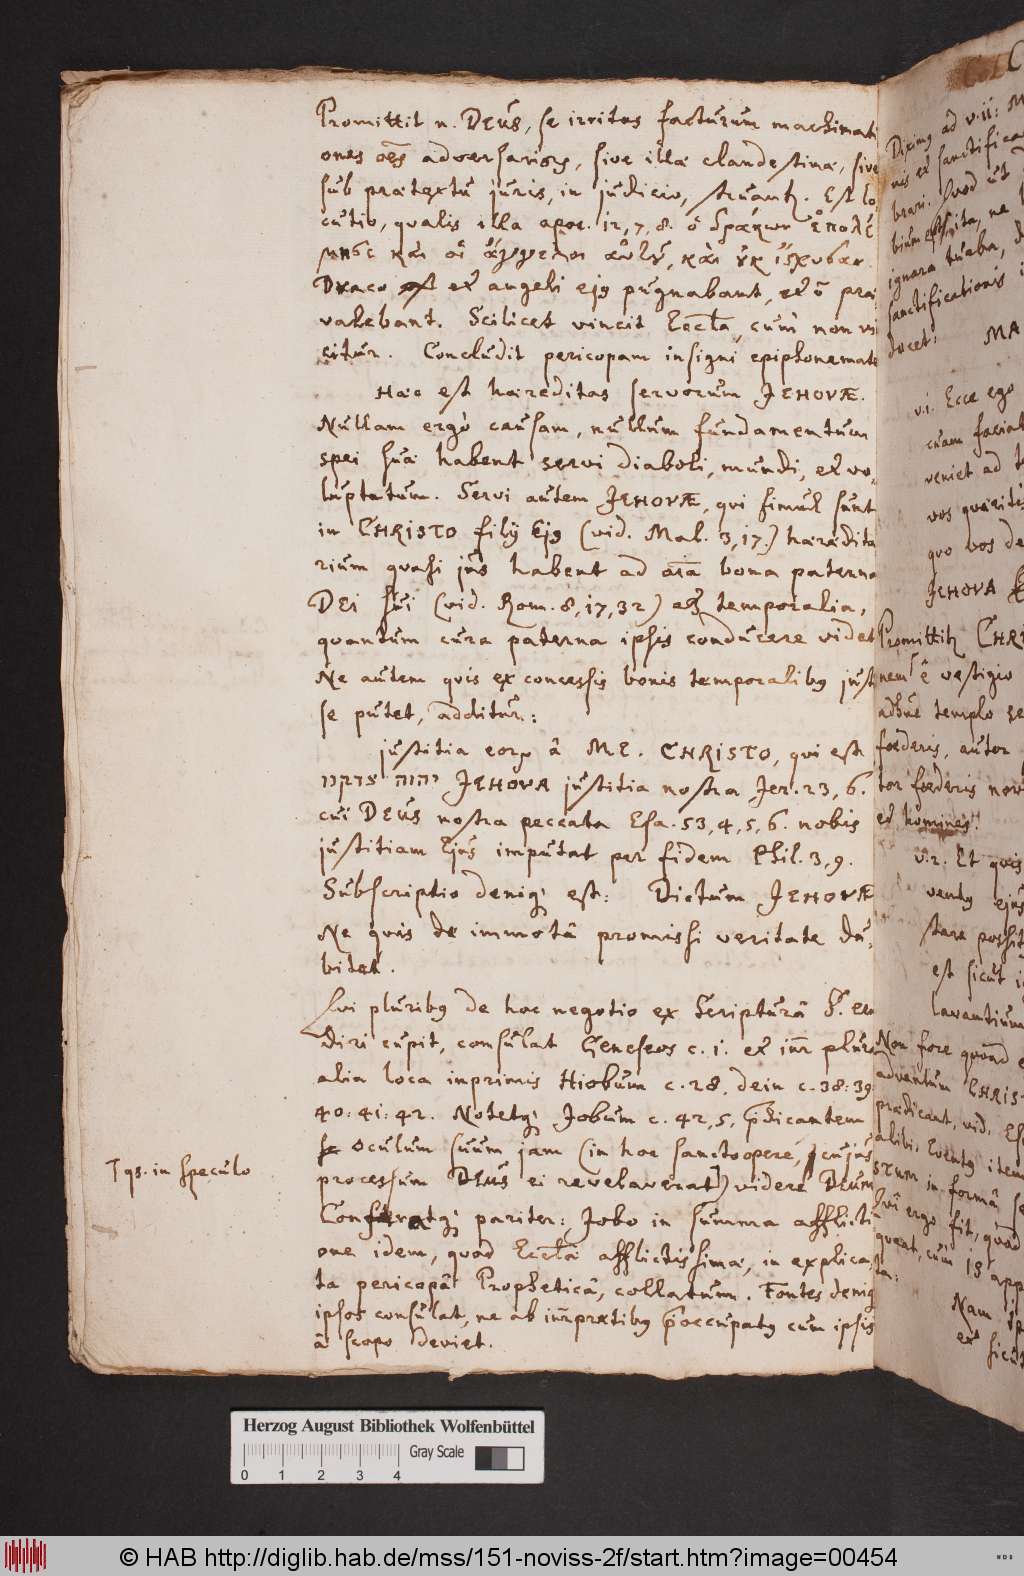 Promittit n. DEUS, se irritas facturum machinati
ones oēs adversariorȝ, sive illæ clandestinæ, sive
sub prætextu juris, in judicio, struantȝ. Est lo
cutio, qualis illa apoc. 12, 7, 8. ὁ δράκων ἐπολέ
μησε καὶ οἱ ἄγγελοι αὐτοῦ, καὶ οὐκ ἴσχυσαν
Draco et angeli ejꝰ pugnabant, et ō præ
valebant. Scilicet vincit Eccl̄a, cum non vi
citur. Concludit pericopam insigni epiphonemate
Hæc est hæreditas servorum JEHOVÆ.
Nullam ergò causam, nullum fundamentum
spei suæ habent servi diaboli, mundi, et vo,
luptatum. Servi autem JEHOVÆ, qui simul sunt
in CHRISTO filij Ejꝰ (vid. Mal. 3, 17.) hæredita
rium quasi jus habent ad oīa bona paterna
DEI sui (vid. Rom. 8, 17, 32) etȝ temporalia,
quantum cura paterna ipsis conducere videt
Ne autem quis ex concessis bonis temporalibꝰ just
se putet, additur:
justitia eorȝ â ME. CHRISTO, qui est
יהוה צדקנו JEHOVA justitia nostra Jer. 23, 6.
cui DEUS nostra peccata Esa. 53, 4, 5, 6. nobis
justitiam Ejus imputat per fidem Phil. 3, 9.
Subscriptio denique est: Dictum JEHOVÆ
Ne quis de immotâ promissi veritate du,
bitet.
Qui pluribꝰ de hoc negotio ex Scripturâ S. eru
diri cupit, consulat Geneseos c. 1. et inr̄ plura
alia loca inprimis Hiobum c. 28. dein c. 38: 39
40: 41: 42. Notetqȝ Jobum c. 42, 5, p̄dicantem
oculum suum jam (in hoc sancto opere, cujus
processum DEUS ei revelaverat) videre DEUM
Conferatqȝ pariter: Jobo in summa afflicti
one idem, quod Eccl̄æ afflictissimæ, in explica,
ta pericopâ Propheticâ, collatum. Fontes deniqȝ
ipsos consulat, ne ab inr̄pretibꝰ p̄occupatꝰ cum ipsis
â scopo deviet.
Tqs. in speculo
Dixing ad v. 11: M
nis et sanctifica
brari. Quod ut
ignara turba, d
sanctificationis
docet: MA
v. 1. Ecce ego
cuam faciat
veniet ad t
vos quæritis
quo vos de
JEHOVA
Promittitȝ CHRI
nem ē vestigio
adhuc templo se
fœderis, autor
tor fœderis nov
et homines.
v. 2. Et quis
ventꝰ ejus
stare possit
est sicut i
lavantium
Non fore quond
adventum CHRIST
prædicant, vid. Es
alibi. Eventꝰ item
STUM in formâ se
Qui ergo fit, quod
queat, cum is app
ta:
Nam ip
et sicut
Herzog August Bibliothek Wolfenbüttel
Gray Scale
0 1 2 3 4
© HAB http://diglib.hab.de/mss/151-noviss-2f/start.htm?image=00454